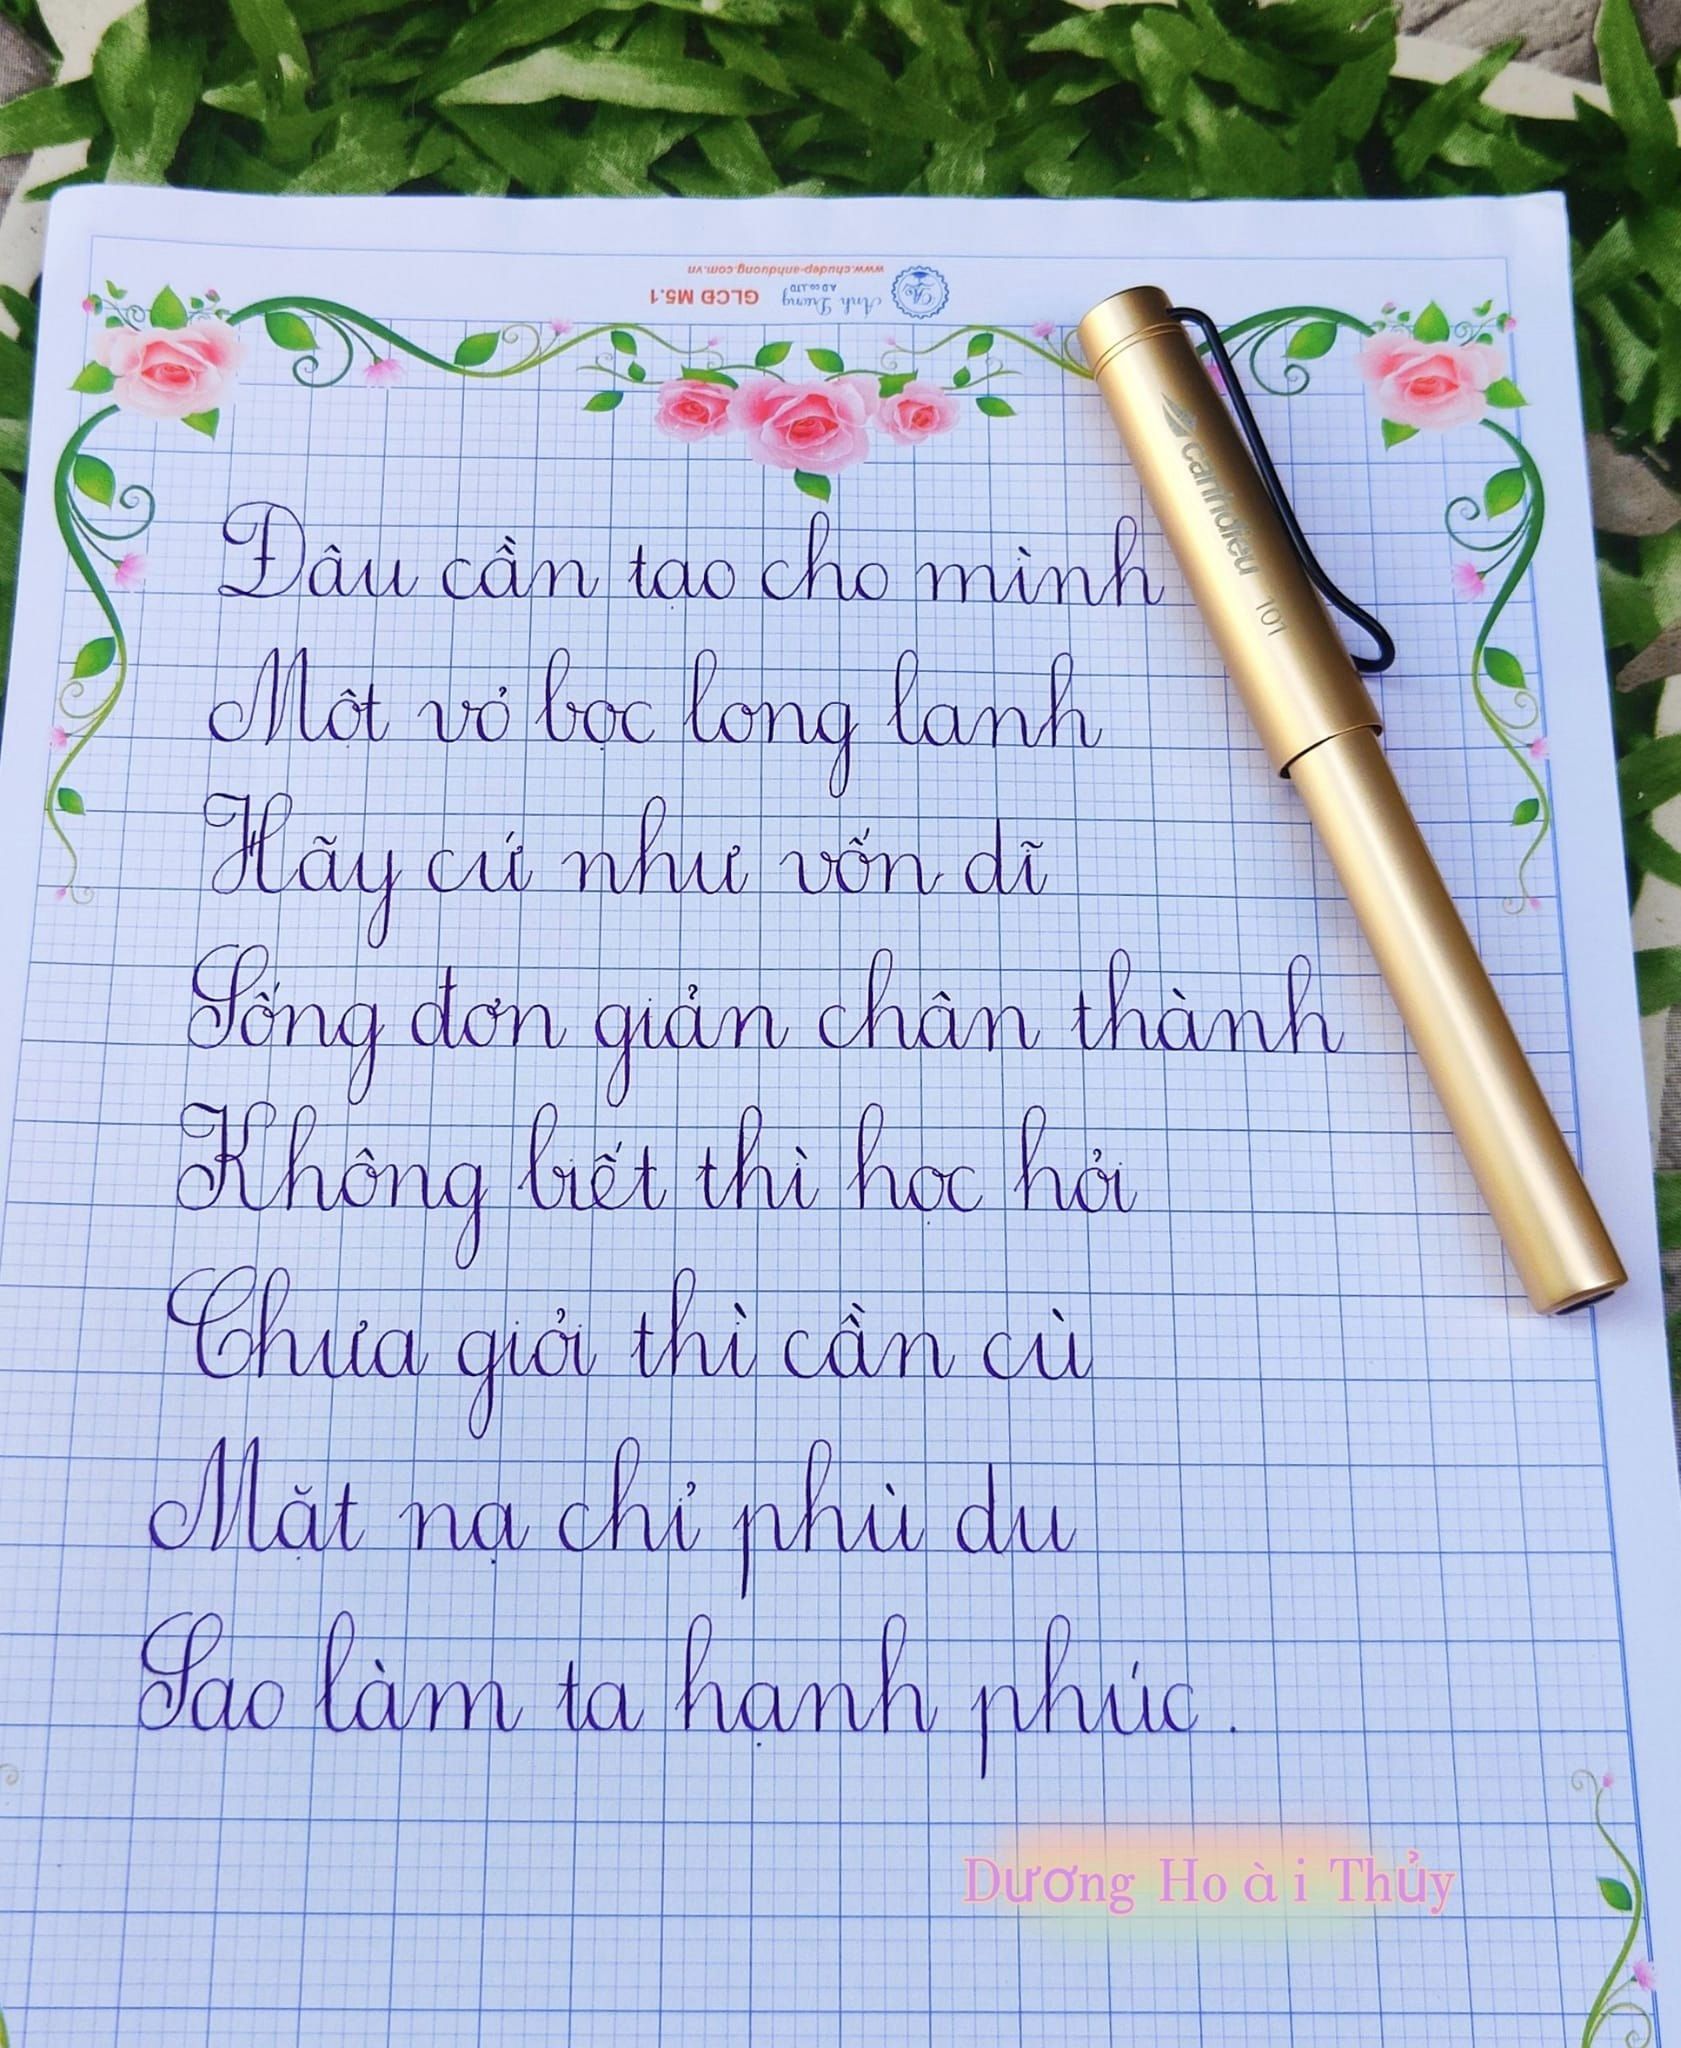 www.chudep-anhduong.com.vn
Ánh Dương GLCĐ M5.1
AD CO.,LTD
canhdieu 101
Đâu cần tạo cho mình
Một vỏ bọc long lanh
Hãy cứ như vốn dĩ
Sống đơn giản chân thành
Không biết thì học hỏi
Chưa giỏi thì cần cù
Mặt nạ chỉ phù du
Sao làm ta hạnh phúc.
Dương Hoài Thủy